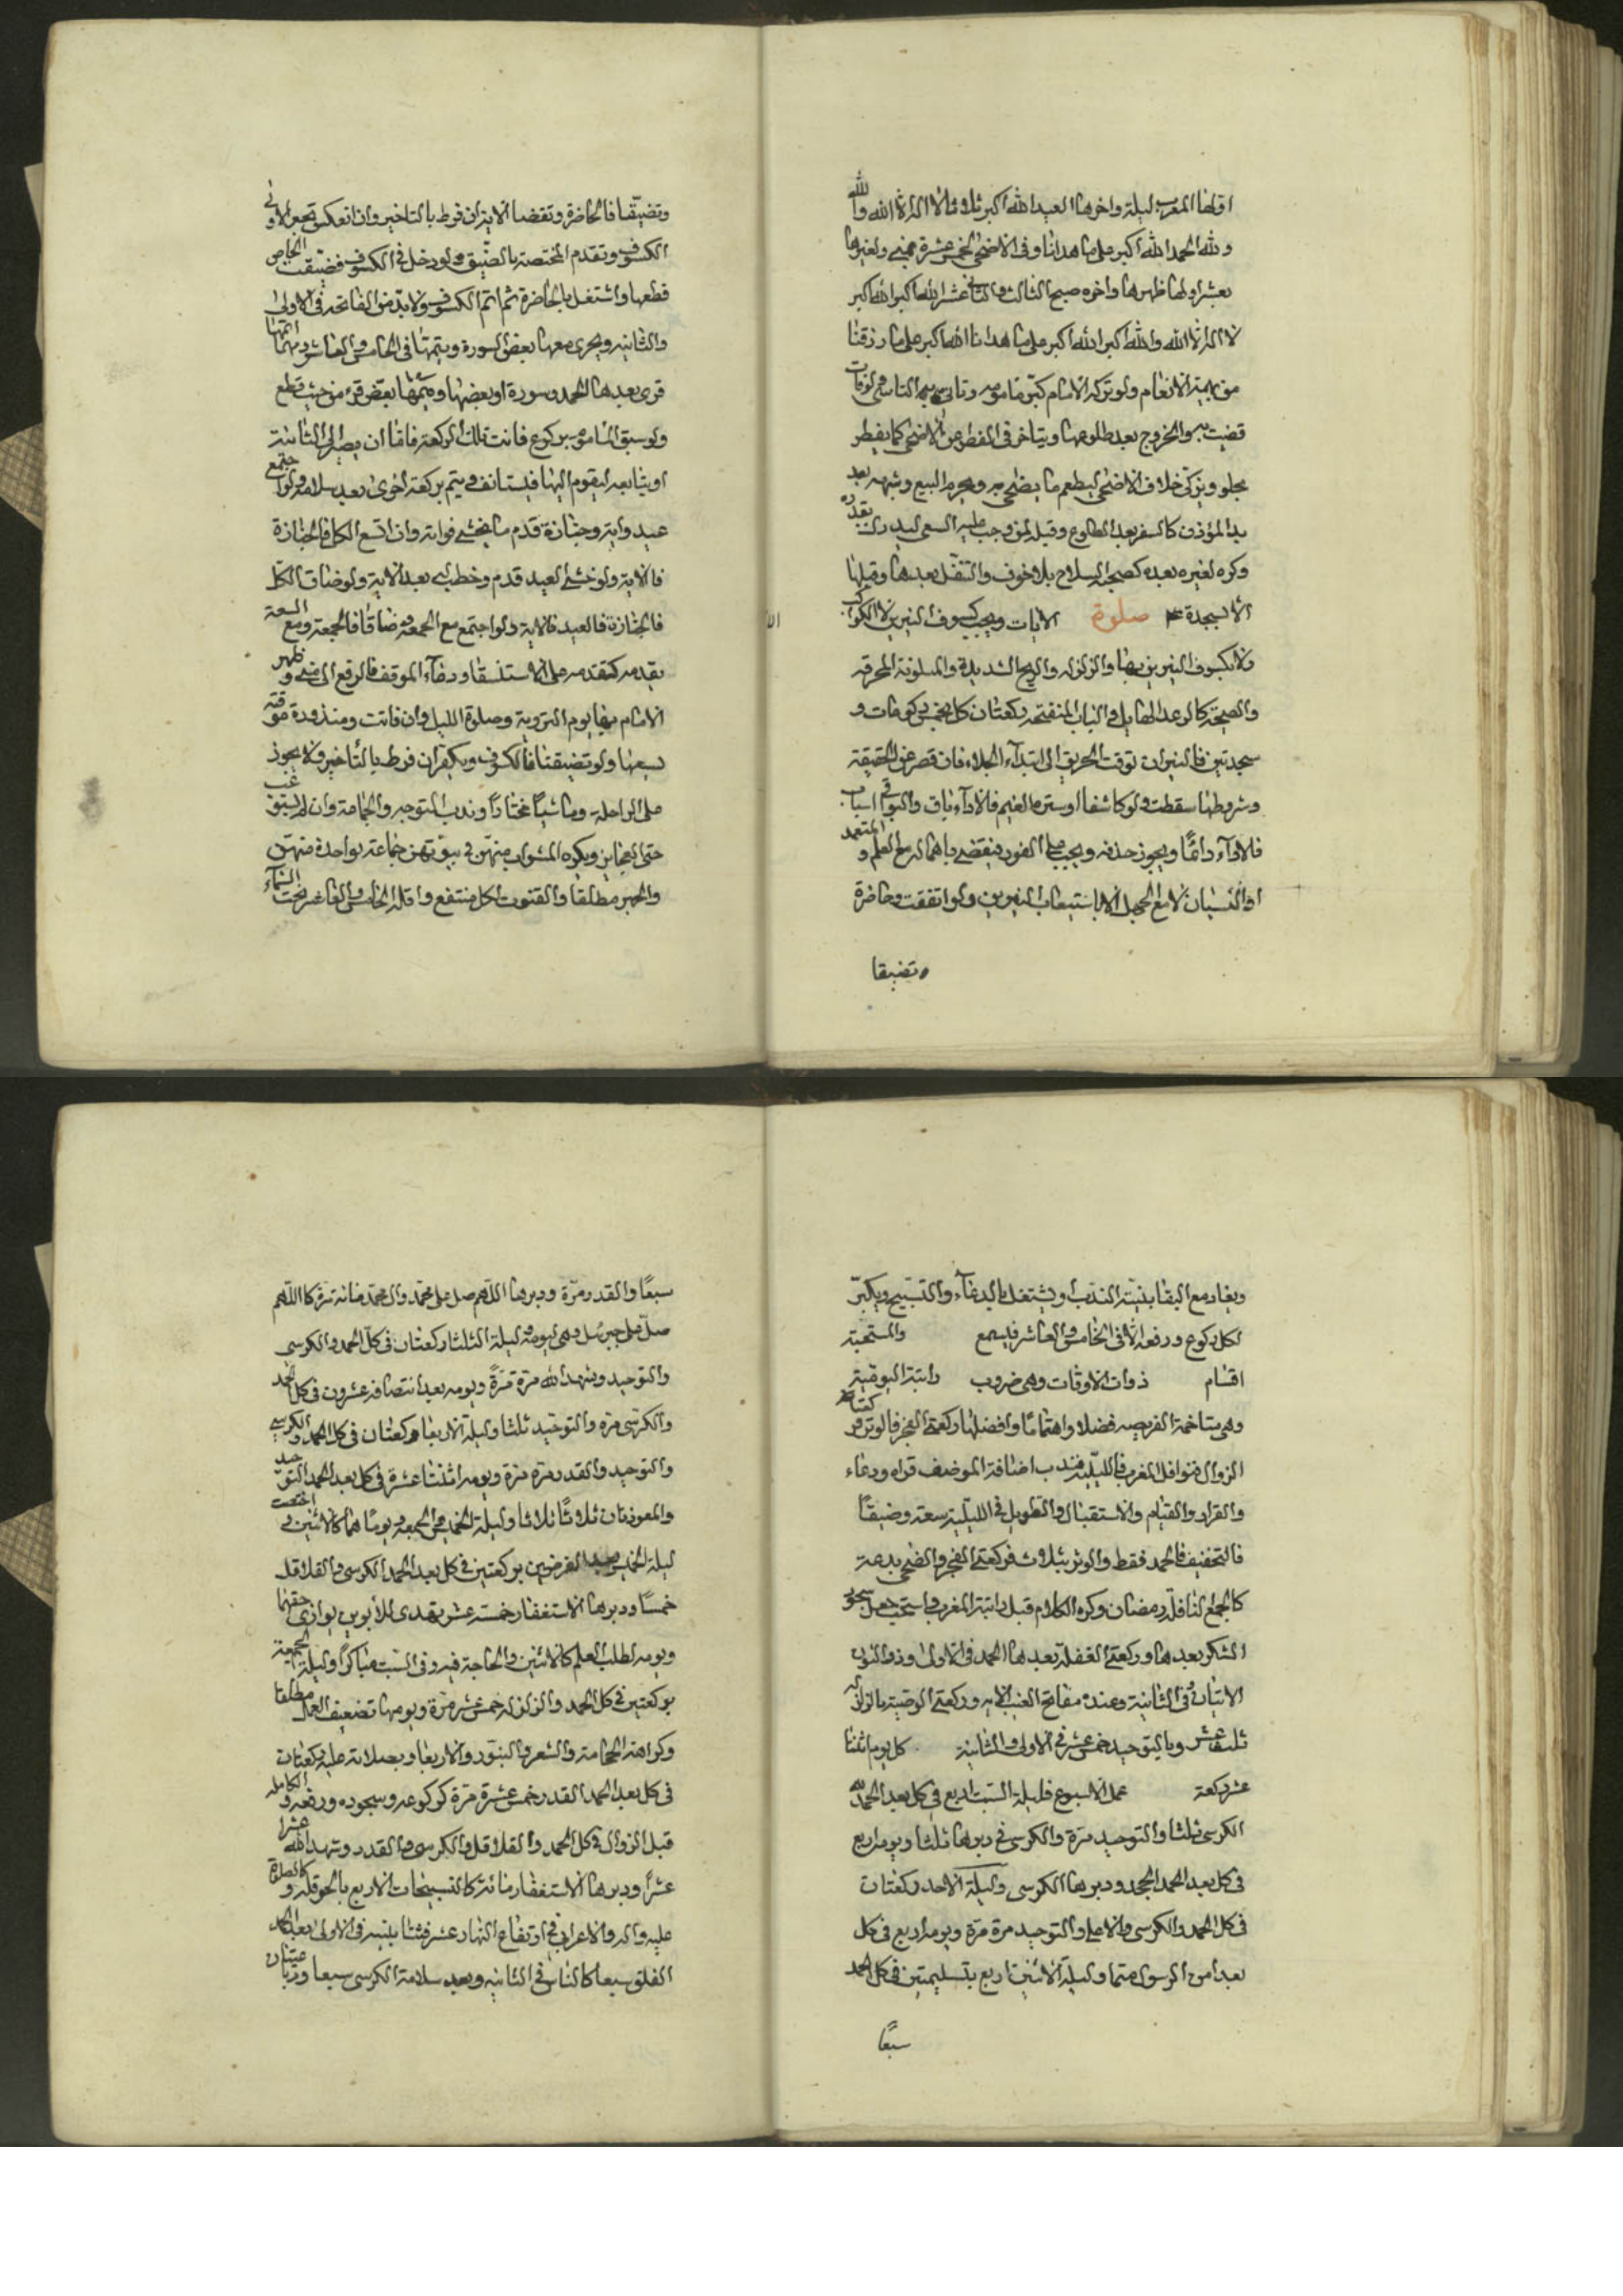 اولها المغرب ليلة واخرها العيد الله اكبر ثلاثا لا اله الا الله والله
ولله الحمد الله اكبر على ما هدانا وفى الاضحى لخمس عشرة بمنى ولغيرها
بعشر اولها ظهرها واخره صبح الثالث والثانى عشر الله اكبر الله اكبر
لا اله الا الله والله اكبر الله اكبر على ما هدانا الله اكبر على ما رزقنا
من بهيمة الانعام ولو تركه الامام كبر ماموم الناسى لو فات
قضيت والخروج بعد طلوعها ويتاخر فى الفطر عن الاضحى كما يفطر
خلاف الاضحى ليطعم ما يضحى به ويحرم البيع وشبهه بعد
المؤذن كالسفر بعد الطلوع وقيل لمن وجب عليه السعى ليدرك بقدره
وكره لغيره بعده كصحبة السلاح بلا خوف والتنفل بعدها وقبلها
الا بمسجده صلوة الايات ويجب كسوف النيرين لا الكواكب
ولا كسوف النيرين بها والزلزلة والريح الشديدة والمتلونة المخوفة
والصيحة كالرعد الهايل والباب المنفتحة ركعتان كل بخمس ركوعات و
سجدتين فالنيران توقت الحريق الى ابتداء الجلاء فان قصر عن الحقيقة
وشروطها سقطت ولو كاشفا او ستره الغيم فالاداء باق والبواقى اسباب
فلاداء دائما ويجوز حذفه ويجب على الفور فيقضى باهماله مع العلم والتعمد
او النسيان لا مع الجهل الا باستيعاب النيرين ولو اتفقت وحاضرة
وتضيقا
وتضيقا فالحاضرة وتقضا الاية ان فرط بالتاخير وان انعكس تجعل الاولى
الكسوف وتقدم المختصة بالضيق ولو دخل فى الكسوف فضيقت الخاص
قطعها واشتغل بالحاضرة ثم اتم الكسوف ولا بد من الفاتحة فى الاولى
والثانية ويجزى معها بعض السورة ويتمها فى الخامس والعاشر اتمها
قرى بعدها الحمد وسورة او بعضها بعض قرء من حيث قطع
ولو سبق الماموم بركوع فاتت تلك الركعة فاما ان يصبر الى الثانية
او يتابعه ليقوم اليها فيستانف ويتم بركعة اخرى بعد سلامه ولو اجتمع
عيد واية وجنازة قدم ما يخشى فواته وان اتسع الكل فالجنازة
فالاية ولو خشى العيد قدم وخطب بعد الاية ولو ضاق الكل
فالجنازة فالعيد فالاية ولو اجتمع مع الجمعة وضاقا فالجمعة ومع السعة
يقدم كتقدمه على الاستسقا ودعاء الموقف فالرفع الى منى وظهر
الامام بها يوم التروية وصلوة الليل وان فاتت ومنذورة موقتة
بسعتها ولو تضيقتا فالكسوف ويكفر ان فرط بالتاخير ولا يجوز
على الراحلة وماشيا مختارا وندب التوجه والجماعة وان لم يستوعب
حتى العجايز ويكره المشواب منهن فى بيوتهن جماعة بواحدة منهن
والجهر مطلقا والقنوت لكل منتفع واقله الخامس والعاشر تحت السماء
ويعاد مع البقا بنية الندب او يشتغل بالدعاء والتسبيح ويكبر
لكل ركوع ورفعه الا فى الخامس والعاشر فيسمع والمستحبة
اقسام ذوات الاوقات وهى ضروب راتبة اليومية
وهى متاخمة الفريضة فضلا واهتماما وافضلها ركعتى الفجر فالوتر
الزوال فنوافل المغرب فالليلية فندب اضافة الموضف قراه ودعاء
والقراء والقيام والاستقبال والتطويل فى الليلية سعة وضيقا
فالتخفيف فالحمد فقط والوتر بثلاث فركعتى الفجر والضحى بدعة
كالجمع لنافلة رمضان وكره الكلام قبل راتبة المغرب واستحب سجود
الشكر بعدها وركعتى الغفلة بعدها الحمد فى الاولى وذو النون
الايتان وفى الثانية وعنده مفاتح الغيب الاية وركعتى الوصية بالزلزلة
ثلث عشر وبالتوحيد خمس عشر فى الاولى والثانية كل يوم اثنتا
عشر ركعة عمل الاسبوع فليلة السبت اربع فى كل بعد الحمد لله
الكرسى ثلثا والتوحيد مرة والكرسى فى دبرها ثلثا ويومه اربع
فى كل بعد الحمد الجحد ودبرها الكرسى وليلة الاحد ركعتان
فى كل الحمد والكرسى والاعلى والتوحيد مرة مرة ويومه اربع فى كل
بعد امن الرسول متما وليلة الاثنين اربع بتسليمتين فى كل الحمد
سبعا
سبعا والقدر مرة ودبرها اللهم صل على محمد وال محمد مائة مرة كا اللهم
صل على جبرئيل وهى ليومه ليلة الثلثا ركعتان فى كل الحمد والكرسى
والتوحيد وشهد الله مرة مرة ويومه بعد انتصافه عشرون فى كل الحمد
والكرسى مرة والتوحيد ثلثا وليلة الاربعا ركعتان فى كل الحمد والكرسى
والتوحيد والقدر مرة مرة ويومه اثنتا عشرة فى كل بعد الحمد التوحيد
والمعوذتان ثلاثا ثلاثا وليلة الخميس والجمعة ويوما هما كالاثنين و اختصت
ليلة الخميس الفرضين بركعتين فى كل بعد الحمد الكرسى والقلاقل
خمسا ودبرها الاستغفار خمسة عشر يهدى للابوين يوازى حقهما
ويومه لطلب العلم كالاثنين والحاجة فيه وفى السبت مباكرا وليلة الجمعة
بركعتين فى كل الحمد والزلزلة خمس عشر مرة ويومها تضعيف العمل مطلقا
وكراهة الحجامة والشعر والنور والاربعا وبصلاته عليه ركعتان
فى كل بعد الحمد القدر خمس عشرة مرة كركوعه وسجوده ورفعه والكاملة
قبل الزوال فى كل الحمد والقلاقل والكرسى والقدر وشهد الله عشرا
عشرا ودبرها الاستغفار مائة كالتسبيحات الاربع بالحوقلة والصلوة
عليه واله والاعرابى فى ارتفاع النهار عشر فثنتا بنية فى الاولى بعد الحمد
الفلق سبعا كالناس فى الثانية وبعد سلامه الكرسى سبعا ورباعيتان